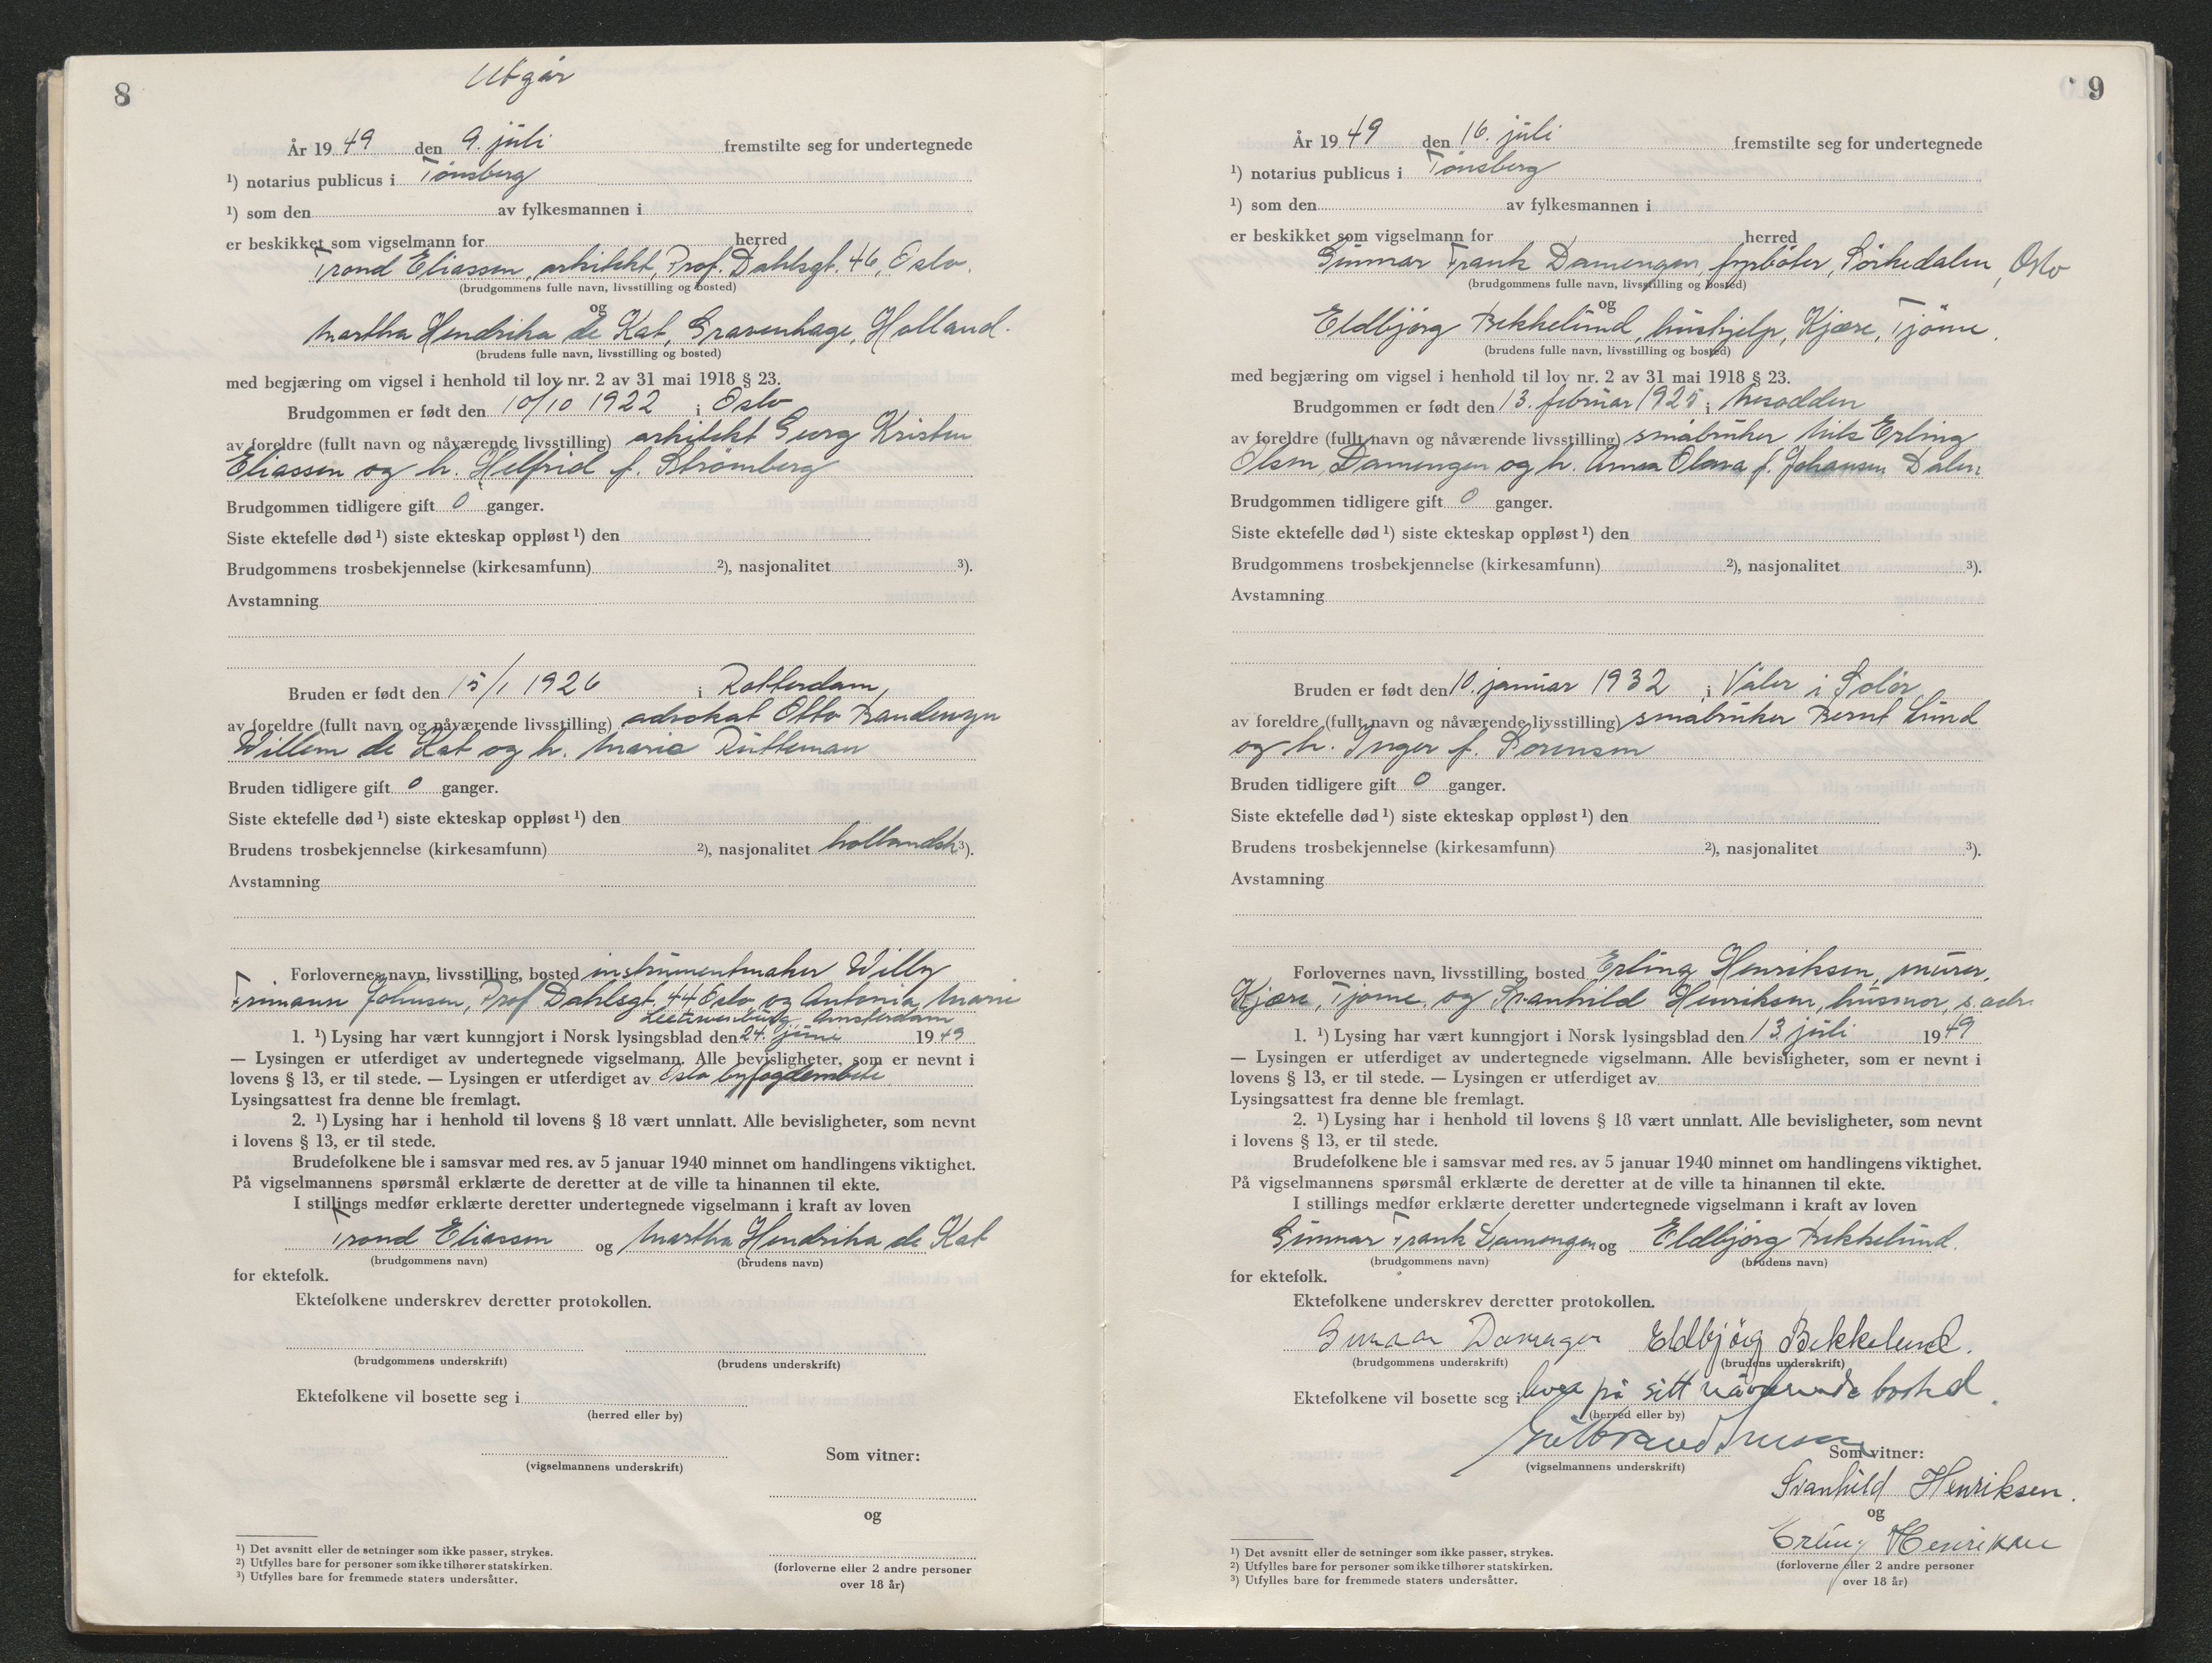 8
Utgår
År 1949 den 9. juli fremstilte seg for undertegnede
¹) notarius publicus i Tønsberg
¹) som den av fylkesmannen i
er beskikket som vigselmann for herred
Trond Eliassen, arkitekt, Prof. Dahlsgt. 46, Oslo.
(brudgommens fulle navn, livsstilling og bosted)
og
Martha Hendrika de Kat, Gravenhage, Holland.
(brudens fulle navn, livsstilling og bosted)
med begjæring om vigsel i henhold til lov nr. 2 av 31 mai 1918 § 23.
Brudgommen er født den 10/10 1922 i Oslo
av foreldre (fullt navn og nåværende livsstilling) arkitekt Georg Kristen
Eliassen og h. Helfrid f. Strömberg
Brudgommen tidligere gift 0 ganger.
Siste ektefelle død ¹) siste ekteskap oppløst ¹) den
Brudgommens trosbekjennelse (kirkesamfunn) ²), nasjonalitet ³).
Avstamning
Bruden er født den 15/1 1926 i Rotterdam,
av foreldre (fullt navn og nåværende livsstilling) advokat Otto
Willem de Kat og h. Maria Rutteman
Bruden tidligere gift 0 ganger.
Siste ektefelle død ¹) siste ekteskap oppløst ¹) den
Brudens trosbekjennelse (kirkesamfunn) ²), nasjonalitet hollandsk ³).
Avstamning
Forlovernes navn, livsstilling, bosted instrumentmaker Willy
Frimann Johnsen, Prof Dahlsgt. 44 Oslo og Antonia Marie
Amsterdam
1. ¹) Lysing har vært kunngjort i Norsk lysingsblad den 24. juni 1949
— Lysingen er utferdiget av undertegnede vigselmann. Alle bevisligheter, som er nevnt i
lovens § 13, er til stede. — Lysingen er utferdiget av Oslo byfogdembete
Lysingsattest fra denne ble fremlagt.
2. ¹) Lysing har i henhold til lovens § 18 vært unnlatt. Alle bevisligheter, som nevnt
i lovens § 13, er til stede.
Brudefolkene ble i samsvar med res. av 5 januar 1940 minnet om handlingens viktighet.
På vigselmannens spørsmål erklærte de deretter at de ville ta hinannen til ekte.
I stillings medfør erklærte deretter undertegnede vigselmann i kraft av loven
Trond Eliassen og Martha Hendrika de Kat
(brudgommens navn) (brudens navn)
for ektefolk.
Ektefolkene underskrev deretter protokollen.
(brudgommens underskrift) (brudens underskrift)
Ektefolkene vil bosette seg i
(herred eller by)
Som vitner:
(vigselmannens underskrift)
og
¹) Det avsnitt eller de setninger som ikke passer, strykes.
²) Utfylles bare for personer som ikke tilhører statskirken.
³) Utfylles bare for fremmede staters undersåtter.
(forloverne eller 2 andre personer
over 18 år)
9
År 1949 den 16. juli fremstilte seg for undertegnede
¹) notarius publicus i Tønsberg
¹) som den av fylkesmannen i
er beskikket som vigselmann for herred
Gunnar Frank Damengen, fyrbøter, Sørkedalen, Oslo
(brudgommens fulle navn, livsstilling og bosted)
og
Eldbjørg Bekkelund, hushjelp, Kjære, Tjøme.
(brudens fulle navn, livsstilling og bosted)
med begjæring om vigsel i henhold til lov nr. 2 av 31 mai 1918 § 23.
Brudgommen er født den 13. februar 1925 i Nesodden
av foreldre (fullt navn og nåværende livsstilling) småbruker Nils Erling
Olsen Damengen og h. Anna Olava f. Johansen Dalen
Brudgommen tidligere gift 0 ganger.
Siste ektefelle død ¹) siste ekteskap oppløst ¹) den
Brudgommens trosbekjennelse (kirkesamfunn) ²), nasjonalitet ³).
Avstamning
Bruden er født den 10. januar 1932 i Våler i Solør
av foreldre (fullt navn og nåværende livsstilling) småbruker Bernt Lund
og h. Inger f. Sørensen
Bruden tidligere gift 0 ganger.
Siste ektefelle død ¹) siste ekteskap oppløst ¹) den
Brudens trosbekjennelse (kirkesamfunn) ²), nasjonalitet ³).
Avstamning
Forlovernes navn, livsstilling, bosted Erling Henriksen, murer,
Kjære, Tjøme, og Svanhild Henriksen, husmor, s. adr.
1. ¹) Lysing har vært kunngjort i Norsk lysingsblad den 13 juli 1949
— Lysingen er utferdiget av undertegnede vigselmann. Alle bevisligheter, som er nevnt i
lovens § 13, er til stede. — Lysingen er utferdiget av
Lysingsattest fra denne ble fremlagt.
2. ¹) Lysing har i henhold til lovens § 18 vært unnlatt. Alle bevisligheter, som nevnt
i lovens § 13, er til stede.
Brudefolkene ble i samsvar med res. av 5 januar 1940 minnet om handlingens viktighet.
På vigselmannens spørsmål erklærte de deretter at de ville ta hinannen til ekte.
I stillings medfør erklærte deretter undertegnede vigselmann i kraft av loven
Gunnar Frank Damengen og Eldbjørg Bekkelund.
(brudgommens navn) (brudens navn)
for ektefolk.
Ektefolkene underskrev deretter protokollen.
Gunnar Damengen Eldbjørg Bekkelund.
(brudgommens underskrift) (brudens underskrift)
Ektefolkene vil bosette seg i hver på sitt nåværende bosted.
(herred eller by)
Som vitner:
(vigselmannens underskrift)
Svanhild Henriksen.
og
Erling Henriksen
¹) Det avsnitt eller de setninger som ikke passer, strykes.
²) Utfylles bare for personer som ikke tilhører statskirken.
³) Utfylles bare for fremmede staters undersåtter.
(forloverne eller 2 andre personer
over 18 år)